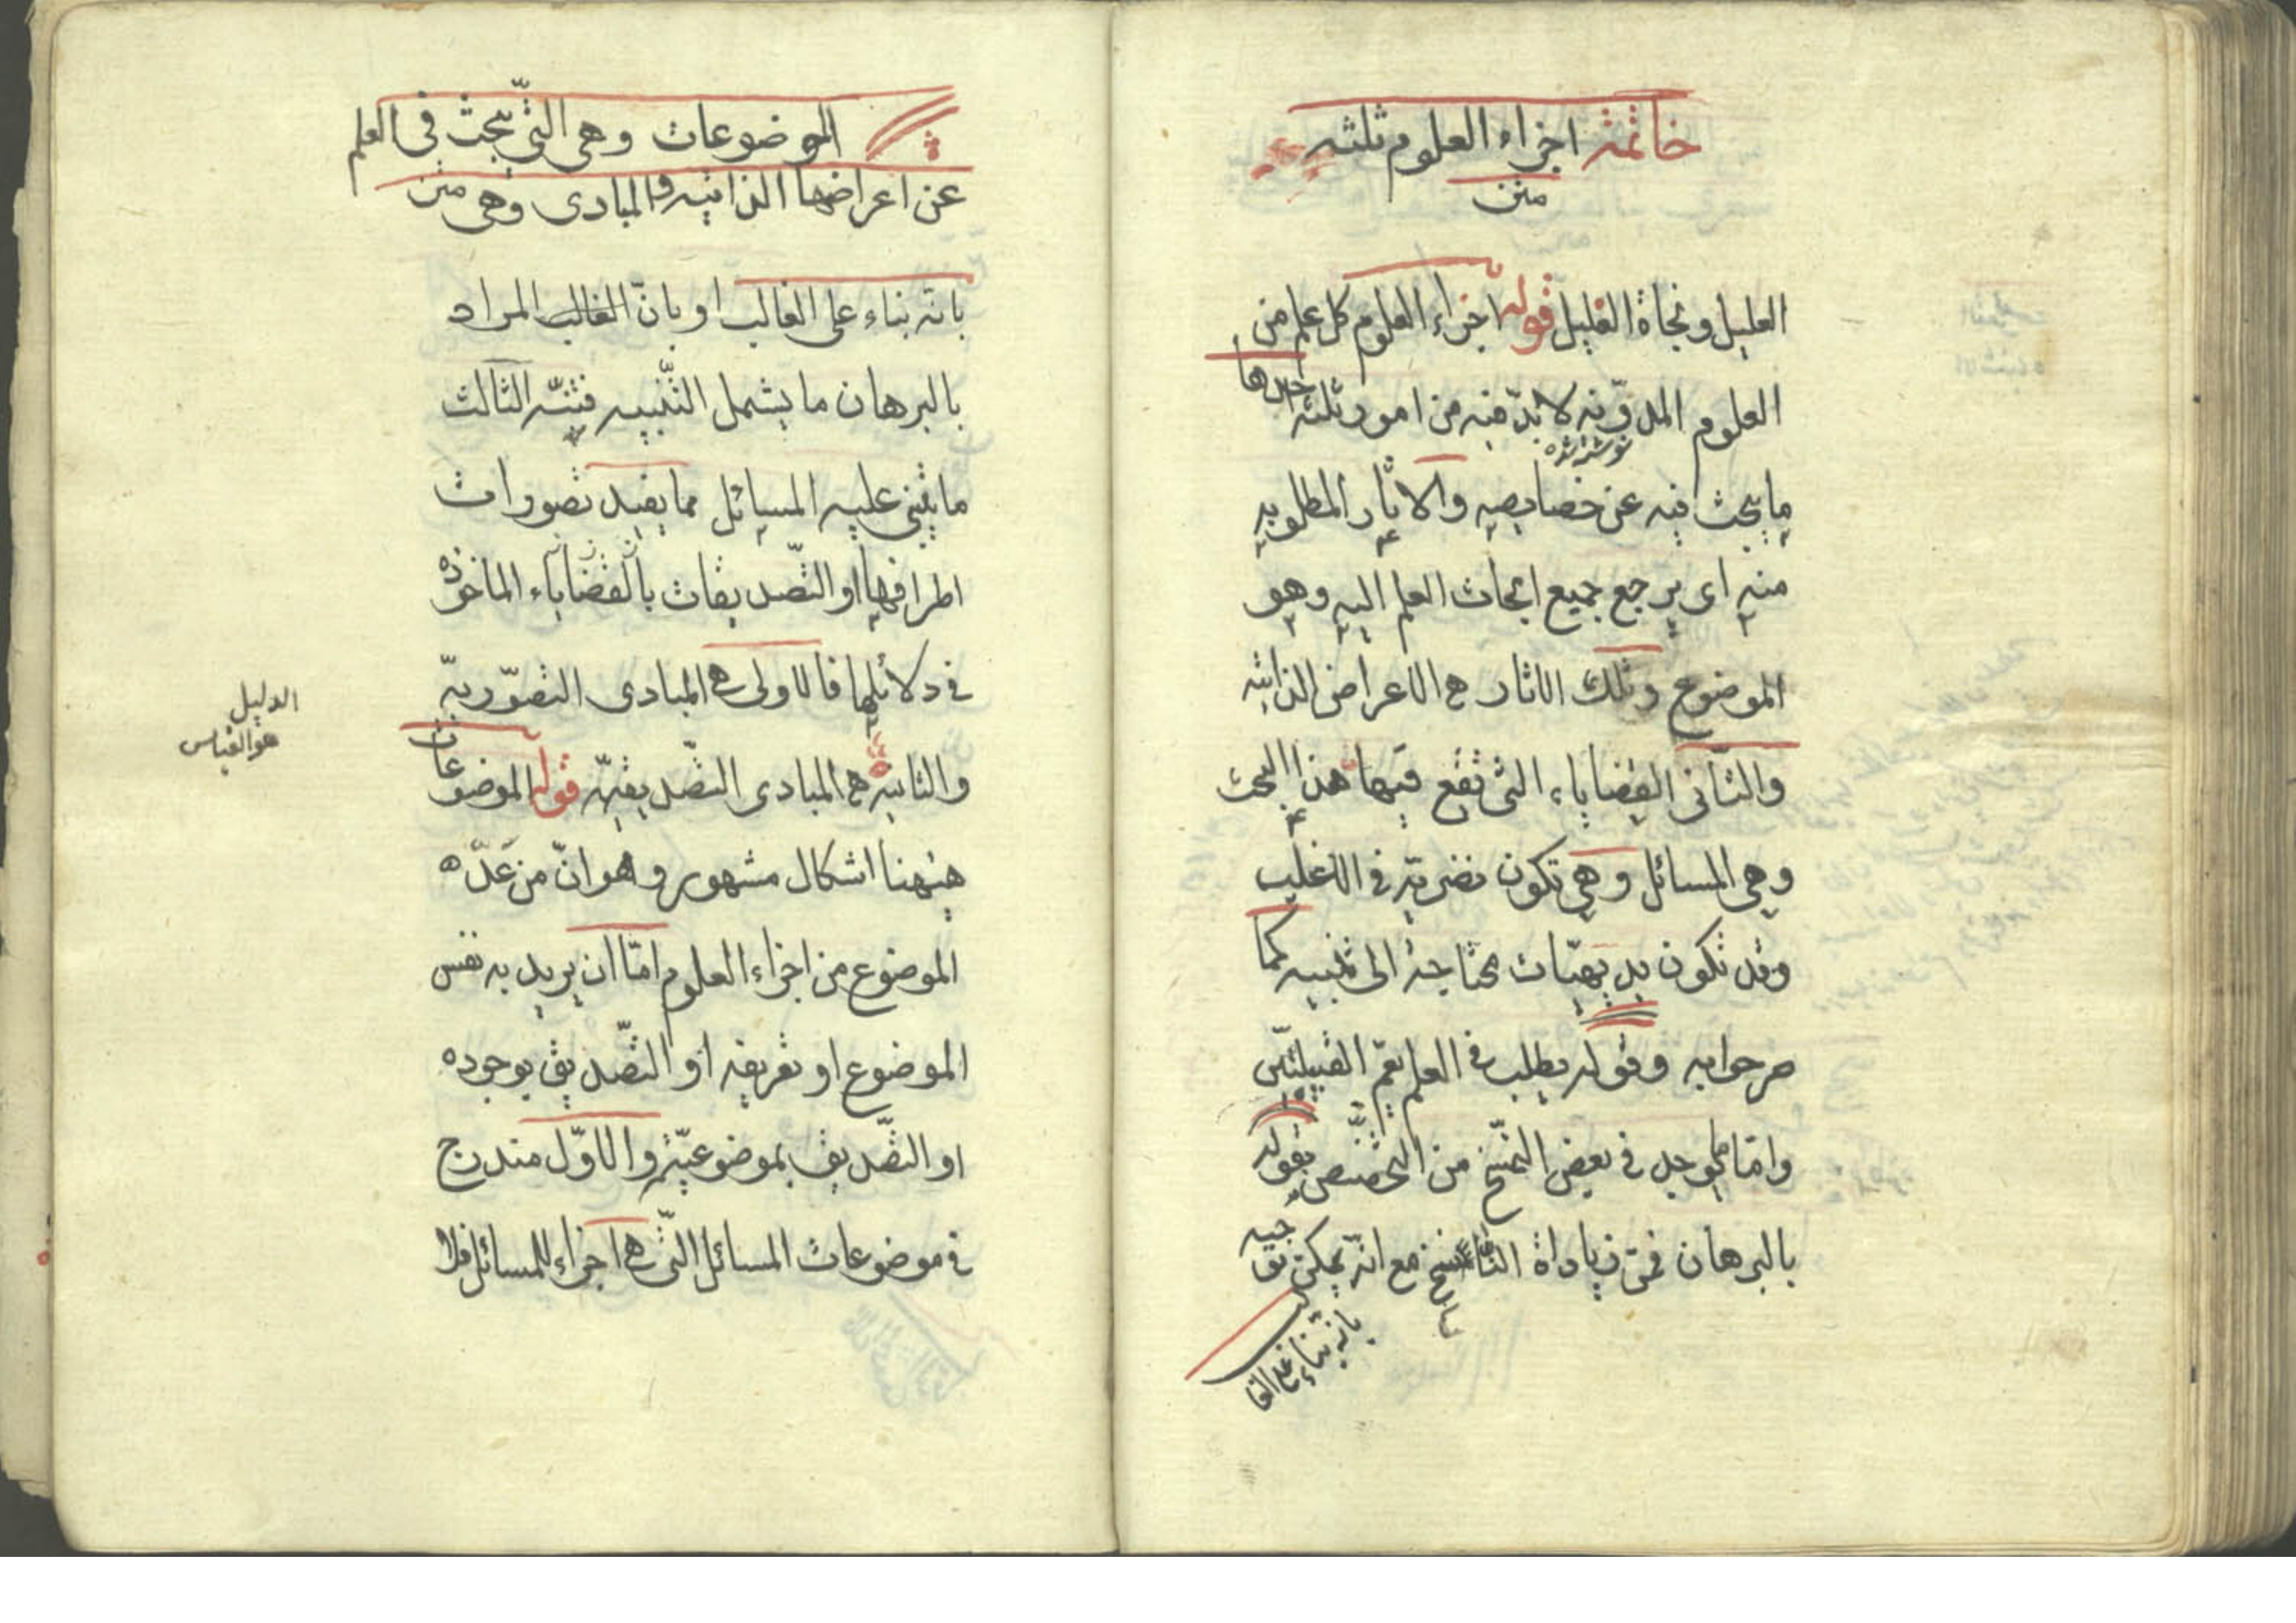 خاتمة اجزاء العلوم ثلثه
متن
العليل ونجاة الغليل قوله اجزاء العلوم كل علم من
العلوم المدوّنه لا بدّ فيه من امور ثلثه احدها
ما يبحث فيه عن خصايصه والاثار المطلوبه
منه اى يرجع جميع ابحاث العلم اليه وهو
الموضوع وتلك الاثار هى الاعراض الذاتيه
والثّانى القضاياء التى تقع فيها هذا البحث
وهى المسائل وهى تكون نضريّة فى الاغلب
وقد تكون بديهيّات محتاجة الى تنبيه كما
صرحوا به وقوله يطلب فى العلم يعمّ القبيلتين
وامّا ما يوجد فى بعض النسخ من التخصيص بقوله
بالبرهان فمن زياداة النّاسخ مع انّه يمكن توجيه
بانه بناء على الغا
الموضوعات وهى التّى يبحث فى العلم
عن اعراضها الذاتيه والمبادى وهى متن
بانّه بناء على الغالب او بانّ الغالب المراد
بالبرهان ما يشمل التّنبيه فتنبّه الثالث
ما يتنى عليه المسائل مما يفيد تصورات
اطرافها او التّصديقات بالقضاياء الماخوذه
فى دلائلها فالاولى هى المبادى التصوّريّه
والثانيه هى المبادى التصديقيّه قوله الموضوعات
هيهنا اشكال مشهور و هو انّ من عَدّه
الموضوع من اجزاء العلوم امّا ان يريد به نفس
الموضوع او تعريفه او التّصديق بوجوده
او التّصديق بموضوعيّته والاوّل مندرج
فى موضوعات المسائل التّى هى اجزاء للمسائل فلا
الدليل
هو القياس